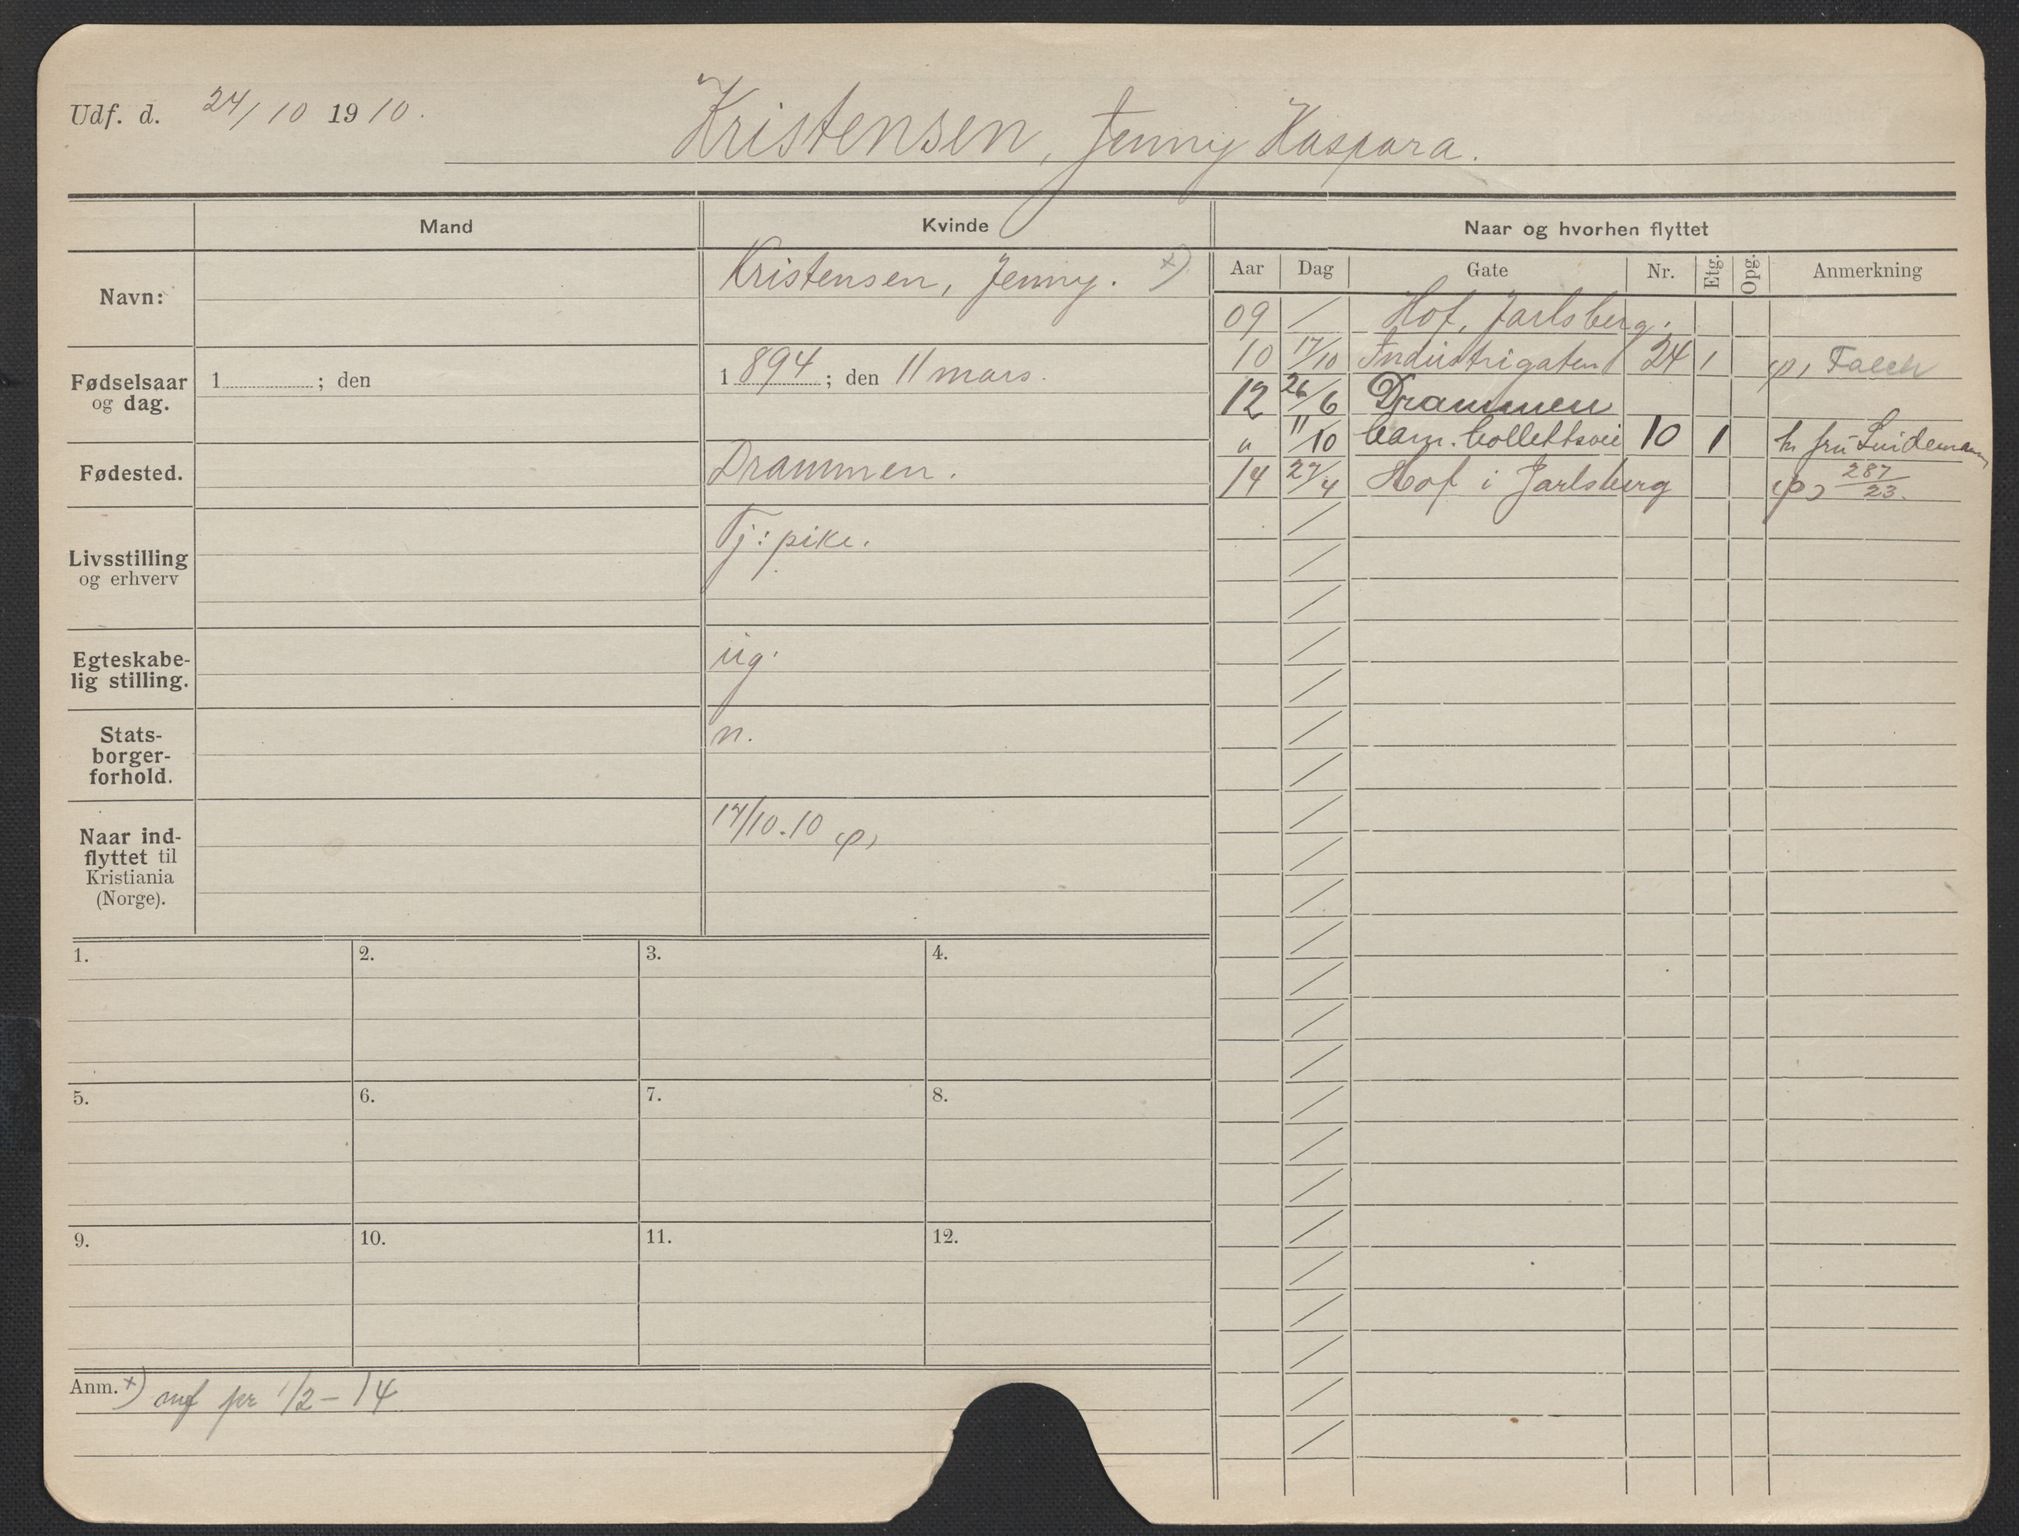 Udf. d. 24/10 1910.
Kristensen, Jenny Kaspara.
Mand
Kvinde
Naar og hvorhen flyttet
Navn:
Kristensen, Jenny. x)
Aar Dag Gate Nr. Etg. Opg. Anmerkning
09 / Hof, Jarlsberg.
10 17/10 Industrigaten 24 1 Falch
12 26/6 Drammen
" 11/10 Cam. Collettsvei 10 1 hr fru Lindemann
14 27/4 Hof i Jarlsberg 287/23.
Fødselsaar og dag.
1 ; den
1 894 ; den 11 mars.
Fødested.
Drammen.
Livsstilling og erhverv
Tj: pike.
Egteskabe-
lig stilling.
ug.
Stats-
borger-
forhold.
n.
Naar ind-
flyttet til
Kristiania
(Norge).
17/10.10
1. 2. 3. 4.
5. 6. 7. 8.
9. 10. 11. 12.
Anm. x) mf pr 1/2 - 14